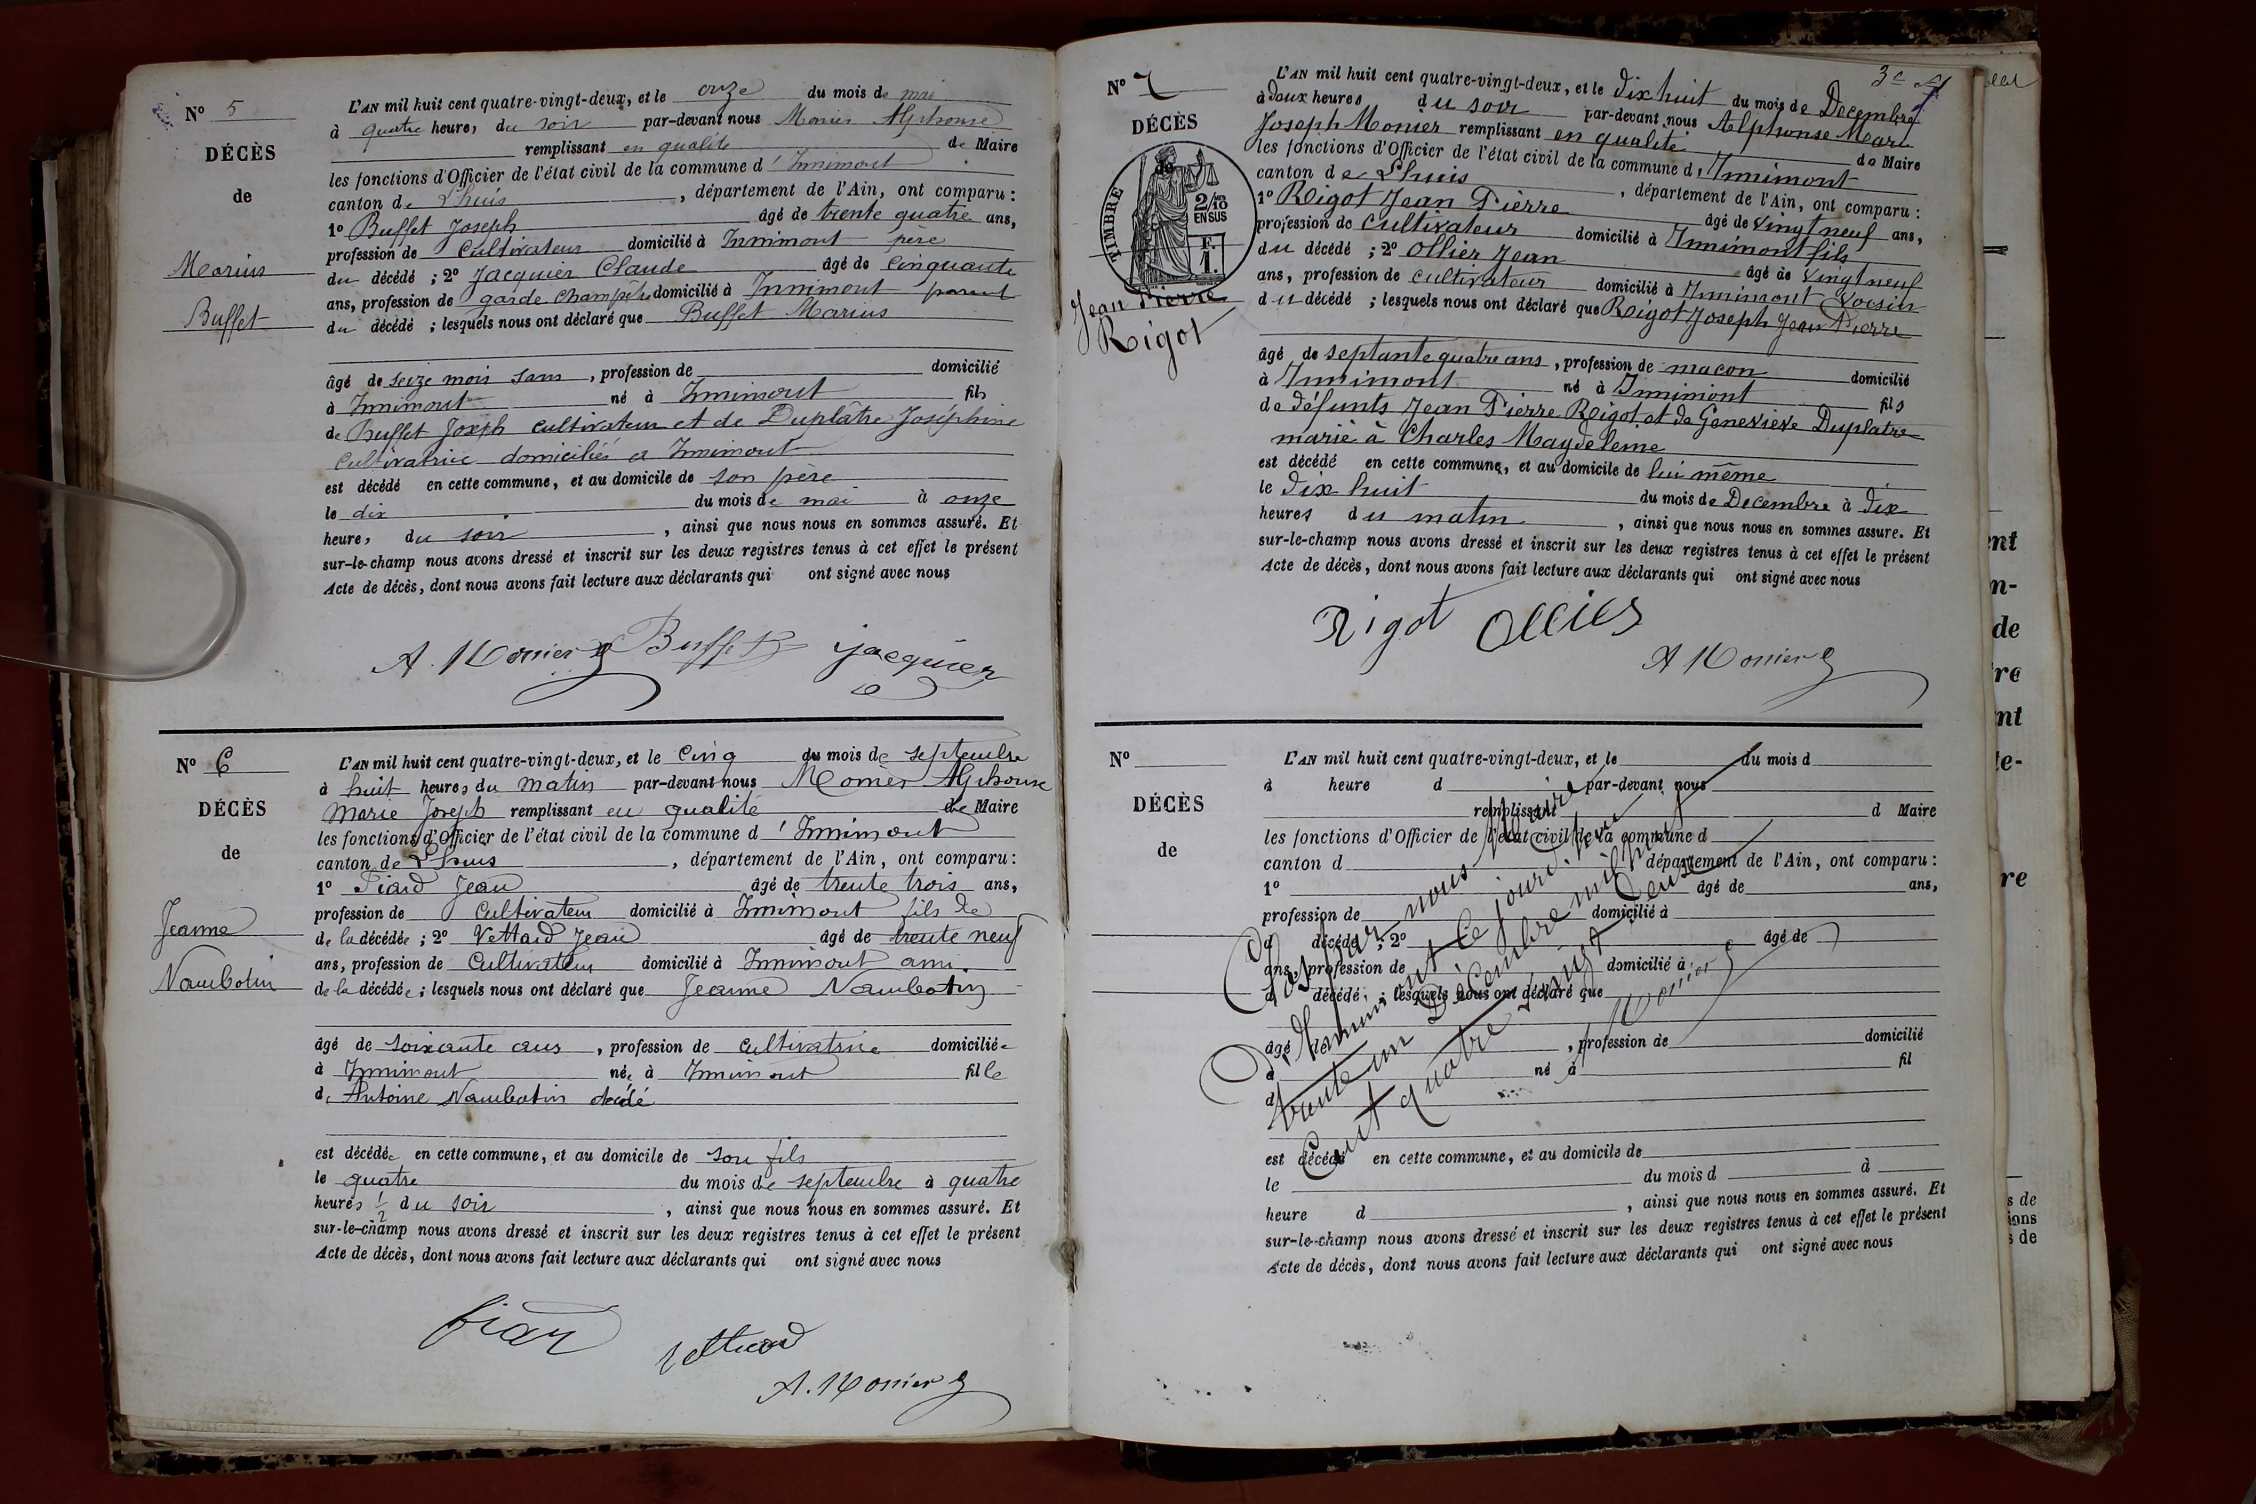 N° 5
DÉCÈS
de
Marius
Buffet
L'AN mil huit cent quatre-vingt-deux, et le onze du mois de mai
à quatre heures du soir par-devant nous Monier Alphonse
remplissant en qualité de Maire
les fonctions d'Officier de l'état civil de la commune d'Innimont
canton de Lhuis, département de l'Ain, ont comparu :
1° Buffet Joseph âgé de trente quatre ans,
profession de Cultivateur domicilié à Innimont père
du décédé ; 2° Jacquier Claude âgé de Cinquante
ans, profession de garde champêtre domicilié à Innimont parent
du décédé ; lesquels nous ont déclaré que Buffet Marius
âgé de seize mois sans, profession de domicilié
à Innimont né à Innimont fils
de Buffet Joseph cultivateur et de Duplâtre Joséphine
Cultivatrice domiciliés à Innimont
est décédé en cette commune, et au domicile de son père
le dix du mois de mai à onze
heures du soir, ainsi que nous nous en sommes assuré. Et
sur-le-champ nous avons dressé et inscrit sur les deux registres tenus à cet effet le présent
Acte de décès, dont nous avons fait lecture aux déclarants qui ont signé avec nous
A. Monier Buffet jacquier
N° 6
DÉCÈS
de
Jeanne
Nambotin
L'AN mil huit cent quatre-vingt-deux, et le Cinq du mois de septembre
à huit heures du matin par-devant nous Monier Alphonse
Marie Joseph remplissant en qualité de Maire
les fonctions d'Officier de l'état civil de la commune d'Innimont
canton de Lhuis, département de l'Ain, ont comparu :
1° Piard Jean âgé de trente trois ans,
profession de Cultivateur domicilié à Innimont fils de
de la décédée ; 2° Vettard Jean âgé de trente neuf
ans, profession de Cultivateur domicilié à Innimont ami
de la décédée ; lesquels nous ont déclaré que Jeanne Nambotin
âgé de soixante ans, profession de cultivatrice domiciliée
à Innimont née à Innimont fille
de Antoine Nambotin décédé
est décédée en cette commune, et au domicile de son fils
le quatre du mois de septembre à quatre
heures 1/2 du soir, ainsi que nous nous en sommes assuré. Et
sur-le-champ nous avons dressé et inscrit sur les deux registres tenus à cet effet le présent
Acte de décès, dont nous avons fait lecture aux déclarants qui ont signé avec nous
piard
vettard
A. Monier
N° 7
DÉCÈS
de
TIMBRE
2/10
EN SUS
F.
1.
Jean Pierre
Rigot
L'AN mil huit cent quatre-vingt-deux, et le dix huit du mois de Decembre
à deux heures du soir par-devant nous Alphonse Mari
Joseph Monier remplissant en qualité de Maire
les fonctions d'Officier de l'état civil de la commune d'Innimont
canton de Lhuis, département de l'Ain, ont comparu :
1° Rigot Jean Pierre âgé de vingt neuf ans,
profession de cultivateur domicilié à Innimont fils
du décédé ; 2° Ollier Jean âgé de vingt neuf
ans, profession de cultivateur domicilié à Innimont voisin
du décédé ; lesquels nous ont déclaré que Rigot Joseph Jean Pierre
âgé de septante quatre ans, profession de macon domicilié
à Innimont né à Innimont fils
de défunts Jean Pierre Rigot et de Geneviève Duplatre
marié à Charles Maydeleme
est décédé en cette commune, et au domicile de lui même
le dix huit du mois de Decembre à dix
heures du matin, ainsi que nous nous en sommes assuré. Et
sur-le-champ nous avons dressé et inscrit sur les deux registres tenus à cet effet le présent
Acte de décès, dont nous avons fait lecture aux déclarants qui ont signé avec nous
Rigot Ollier
A Monier
N°
DÉCÈS
de
L'AN mil huit cent quatre-vingt-deux, et le du mois d
à heure d par-devant nous
remplissant d Maire
les fonctions d'Officier de l'état civil de la commune d
canton d département de l'Ain, ont comparu :
1° âgé de ans,
profession de domicilié à
d décédé ; 2° âgé de
ans, profession de domicilié à
d décédé ; lesquels nous ont déclaré que
âgé de, profession de domicilié
à né à fil
d
est décédé en cette commune, et au domicile de
le du mois d à
heure d, ainsi que nous nous en sommes assuré. Et
sur-le-champ nous avons dressé et inscrit sur les deux registres tenus à cet effet le présent
Acte de décès, dont nous avons fait lecture aux déclarants qui ont signé avec nous
Clos par nous Maire
D'Innimont ce jourd'hui
trente un Décembre mil huit
Cent quatre vingt deux
Monier